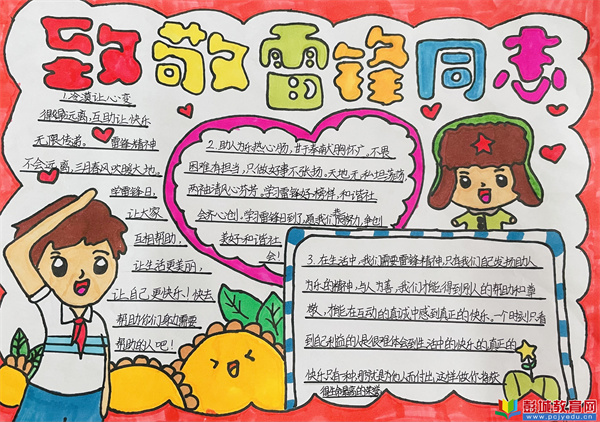 致敬雷锋同志
1.冷漠让人心变
得久远离,互助让快乐
无限传递。雷锋精神
不会远离,三月春风吹暖大地。
学雷锋日,
让大家
互相帮助,
让生活更美丽,
让自己更快乐!快去
帮助你们身边需要
帮助的人吧!
2.助人为乐热心肠,甘于奉献胸怀广。不畏
困难有担当,只做好事不张扬。天地无私坦荡荡
两袖清风心芬芳。学习雷锋好榜样,和谐社
会齐心创。学习雷锋日到了,愿我们努力,争创
美好和谐社
会!
3.在生活中,我们需要雷锋精神,只有我们自己发扬助人
为乐的精神,与人为善,我们才能得到别人的帮助和尊
敬,才能在互动的真诚中感到真正的快乐。一个时刻只看
到自己利益的人是很难体会到生活中的快乐的,真正的
快乐只有一种,那就是为他人而付出,这样做你将获
得生命最高的荣誉
彭城教育网
www.pcjyedu.cn